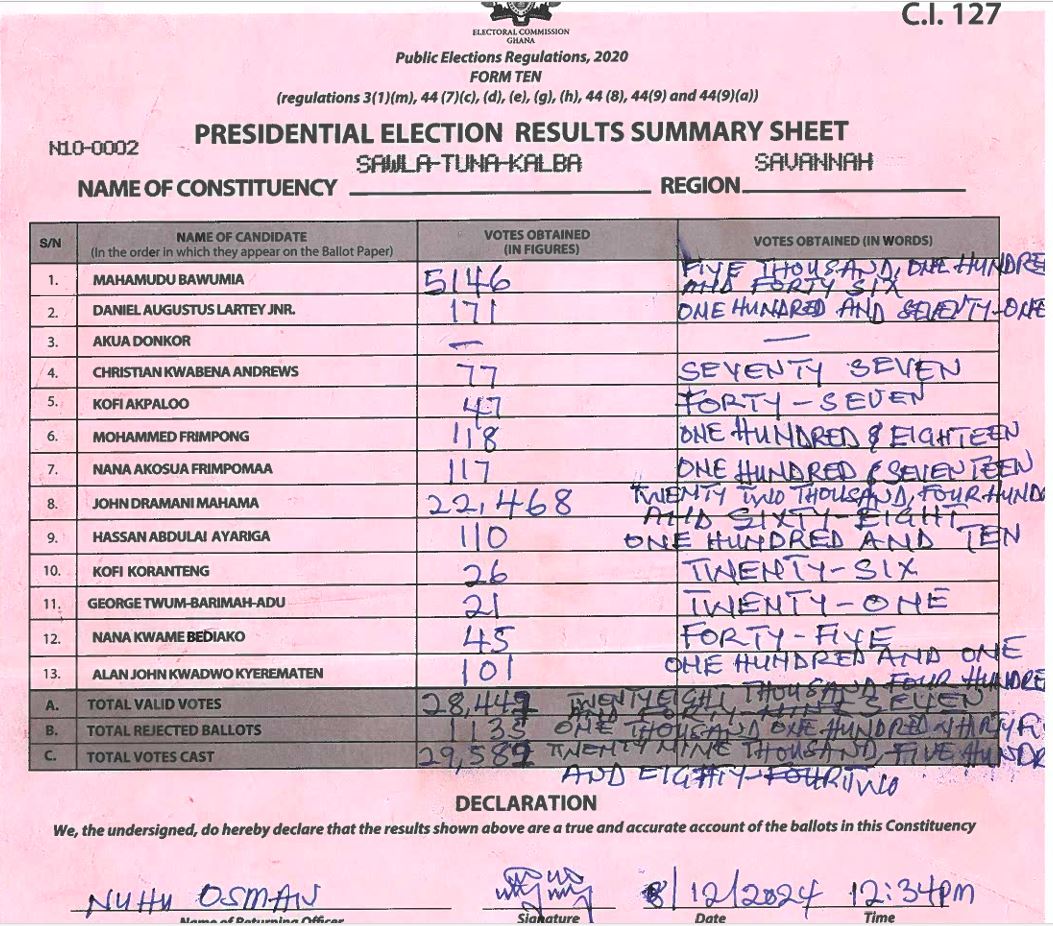 C.I. 127
ELECTORAL COMMISSION
GHANA
Public Elections Regulations, 2020
FORM TEN
(regulations 3(1)(m), 44 (7)(c), (d), (e), (g), (h), 44 (8), 44(9) and 44(9)(a))
PRESIDENTIAL ELECTION RESULTS SUMMARY SHEET
N10-0002
SAWLA-TUNA-KALBA SAVANNAH
NAME OF CONSTITUENCY REGION
S/N NAME OF CANDIDATE (In the order in which they appear on the Ballot Paper) VOTES OBTAINED (IN FIGURES) VOTES OBTAINED (IN WORDS)
1. MAHAMUDU BAWUMIA 5146 FIVE THOUSAND, ONE HUNDRE
AND FORTY SIX
2. DANIEL AUGUSTUS LARTEY JNR. 171 ONE HUNDRED AND SEVENTY-ONE
3. AKUA DONKOR — —
4. CHRISTIAN KWABENA ANDREWS 77 SEVENTY SEVEN
5. KOFI AKPALOO 47 FORTY-SEVEN
6. MOHAMMED FRIMPONG 118 ONE HUNDRED & EIGHTEEN
7. NANA AKOSUA FRIMPOMAA 117 ONE HUNDRED & SEVENTEEN
8. JOHN DRAMANI MAHAMA 22,468 TWENTY TWO THOUSAND, FOUR HUND
AND SIXTY-EIGHT
9. HASSAN ABDULAI AYARIGA 110 ONE HUNDRED AND TEN
10. KOFI KORANTENG 26 TWENTY-SIX
11. GEORGE TWUM-BARIMAH-ADU 21 TWENTY-ONE
12. NANA KWAME BEDIAKO 45 FORTY-FIVE
13. ALAN JOHN KWADWO KYEREMATEN 101 ONE HUNDRED AND ONE
A. TOTAL VALID VOTES 28,447 TWENTY EIGHT THOUSAND FOUR HUNDRE
AND FORTY NINE SEVEN
B. TOTAL REJECTED BALLOTS 1135 ONE THOUSAND ONE HUNDRED THIRTY F
C. TOTAL VOTES CAST 29,582 TWENTY NINE THOUSAND, FIVE HUNDR
AND EIGHTY-FOUR TWO
DECLARATION
We, the undersigned, do hereby declare that the results shown above are a true and accurate account of the ballots in this Constituency
NUHU OSMAN 8/12/2024 12:34PM
Name of Returning Officer Signature Date Time